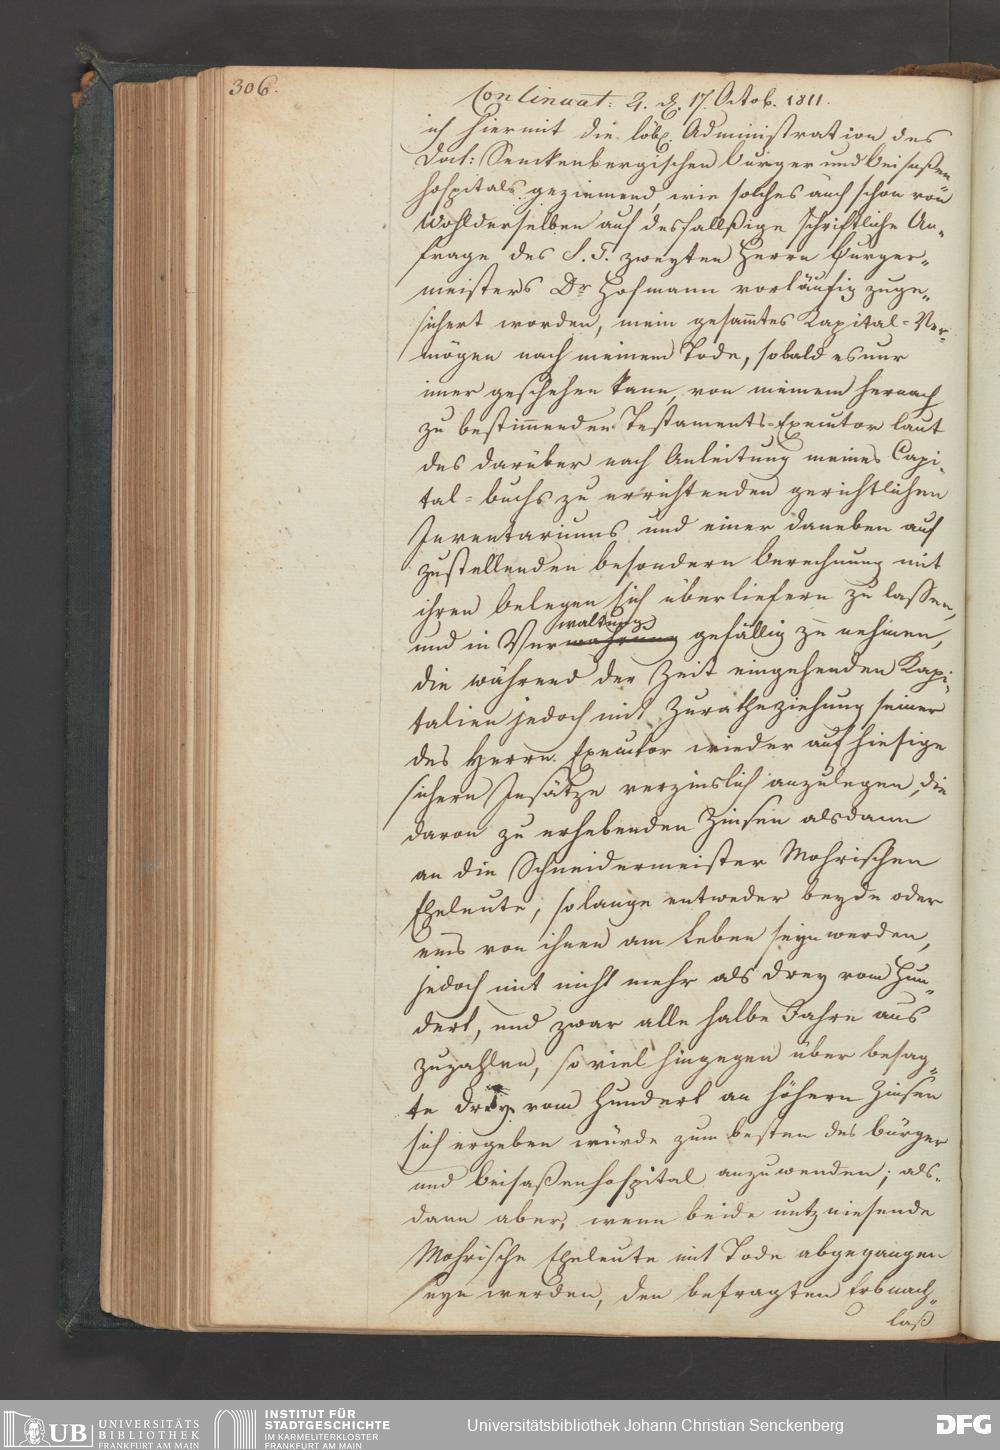 306.
Continuat: 2. d. 17. Octob. 1811.
ich hiermit die löbl. Administration des
Doct: Senckenbergischen Bürger und Beisaßen
hospitals geziemend, wie solches auch schon von
Wohlderselben auf desfallßige schriftliche An-
frage des S. T. zweyten Herrn Burger-
meisters Dr Hofmann vorläufig zuge-
sichert worden, mein gesamtes Kapital-Ver-
mögen nach meinem Tode, sobald es nur
imer geschehen kann, von meinem hernach
zu bestimenden Testaments-Executor laut
des darüber nach Anleitung meines Capi-
tal-buchs zu errichtenden gerichtlichen
Inventariums und einer daneben auf
zustellenden besondern Berechnung mit
ihren Belegen sich überliefern zu lassen,
waltung
und in Verwahrung gefällig zu nehmen,
die während der Zeit eingehenden Kapi-
talien jedoch mit Zuratheziehung seiner
des Herrn Executor wieder auf hiesige
sichern Insätze verzinslich anzulegen, die
davon zu erhebenden Zinsen alsdann
an die Schneidermeister Mohrischen
Eheleute, solange entweder beyde oder
eins von ihnen am Leben seyn werden,
jedoch mit nicht mehr als drey vom Hun-
dert, und zwar alle halbe Jahre aus
zuzahlen, so viel hingegen über besag-
te drey vom Hundert an höhern Zinsen
sich ergeben würde zum besten des Bürger
und Beisaßenhospital anzuwenden; als-
dann aber, wenn beide nutzniesende
Mohrische Eheleute mit Tode abgegangen
seyn werden, den befragten Erbnach-
laß
UB
UNIVERSITÄTS
BIBLIOTHEK
FRANKFURT AM MAIN
INSTITUT FÜR
STADTGESCHICHTE
IM KARMELITERKLOSTER
FRANKFURT AM MAIN
Universitätsbibliothek Johann Christian Senckenberg
DFG